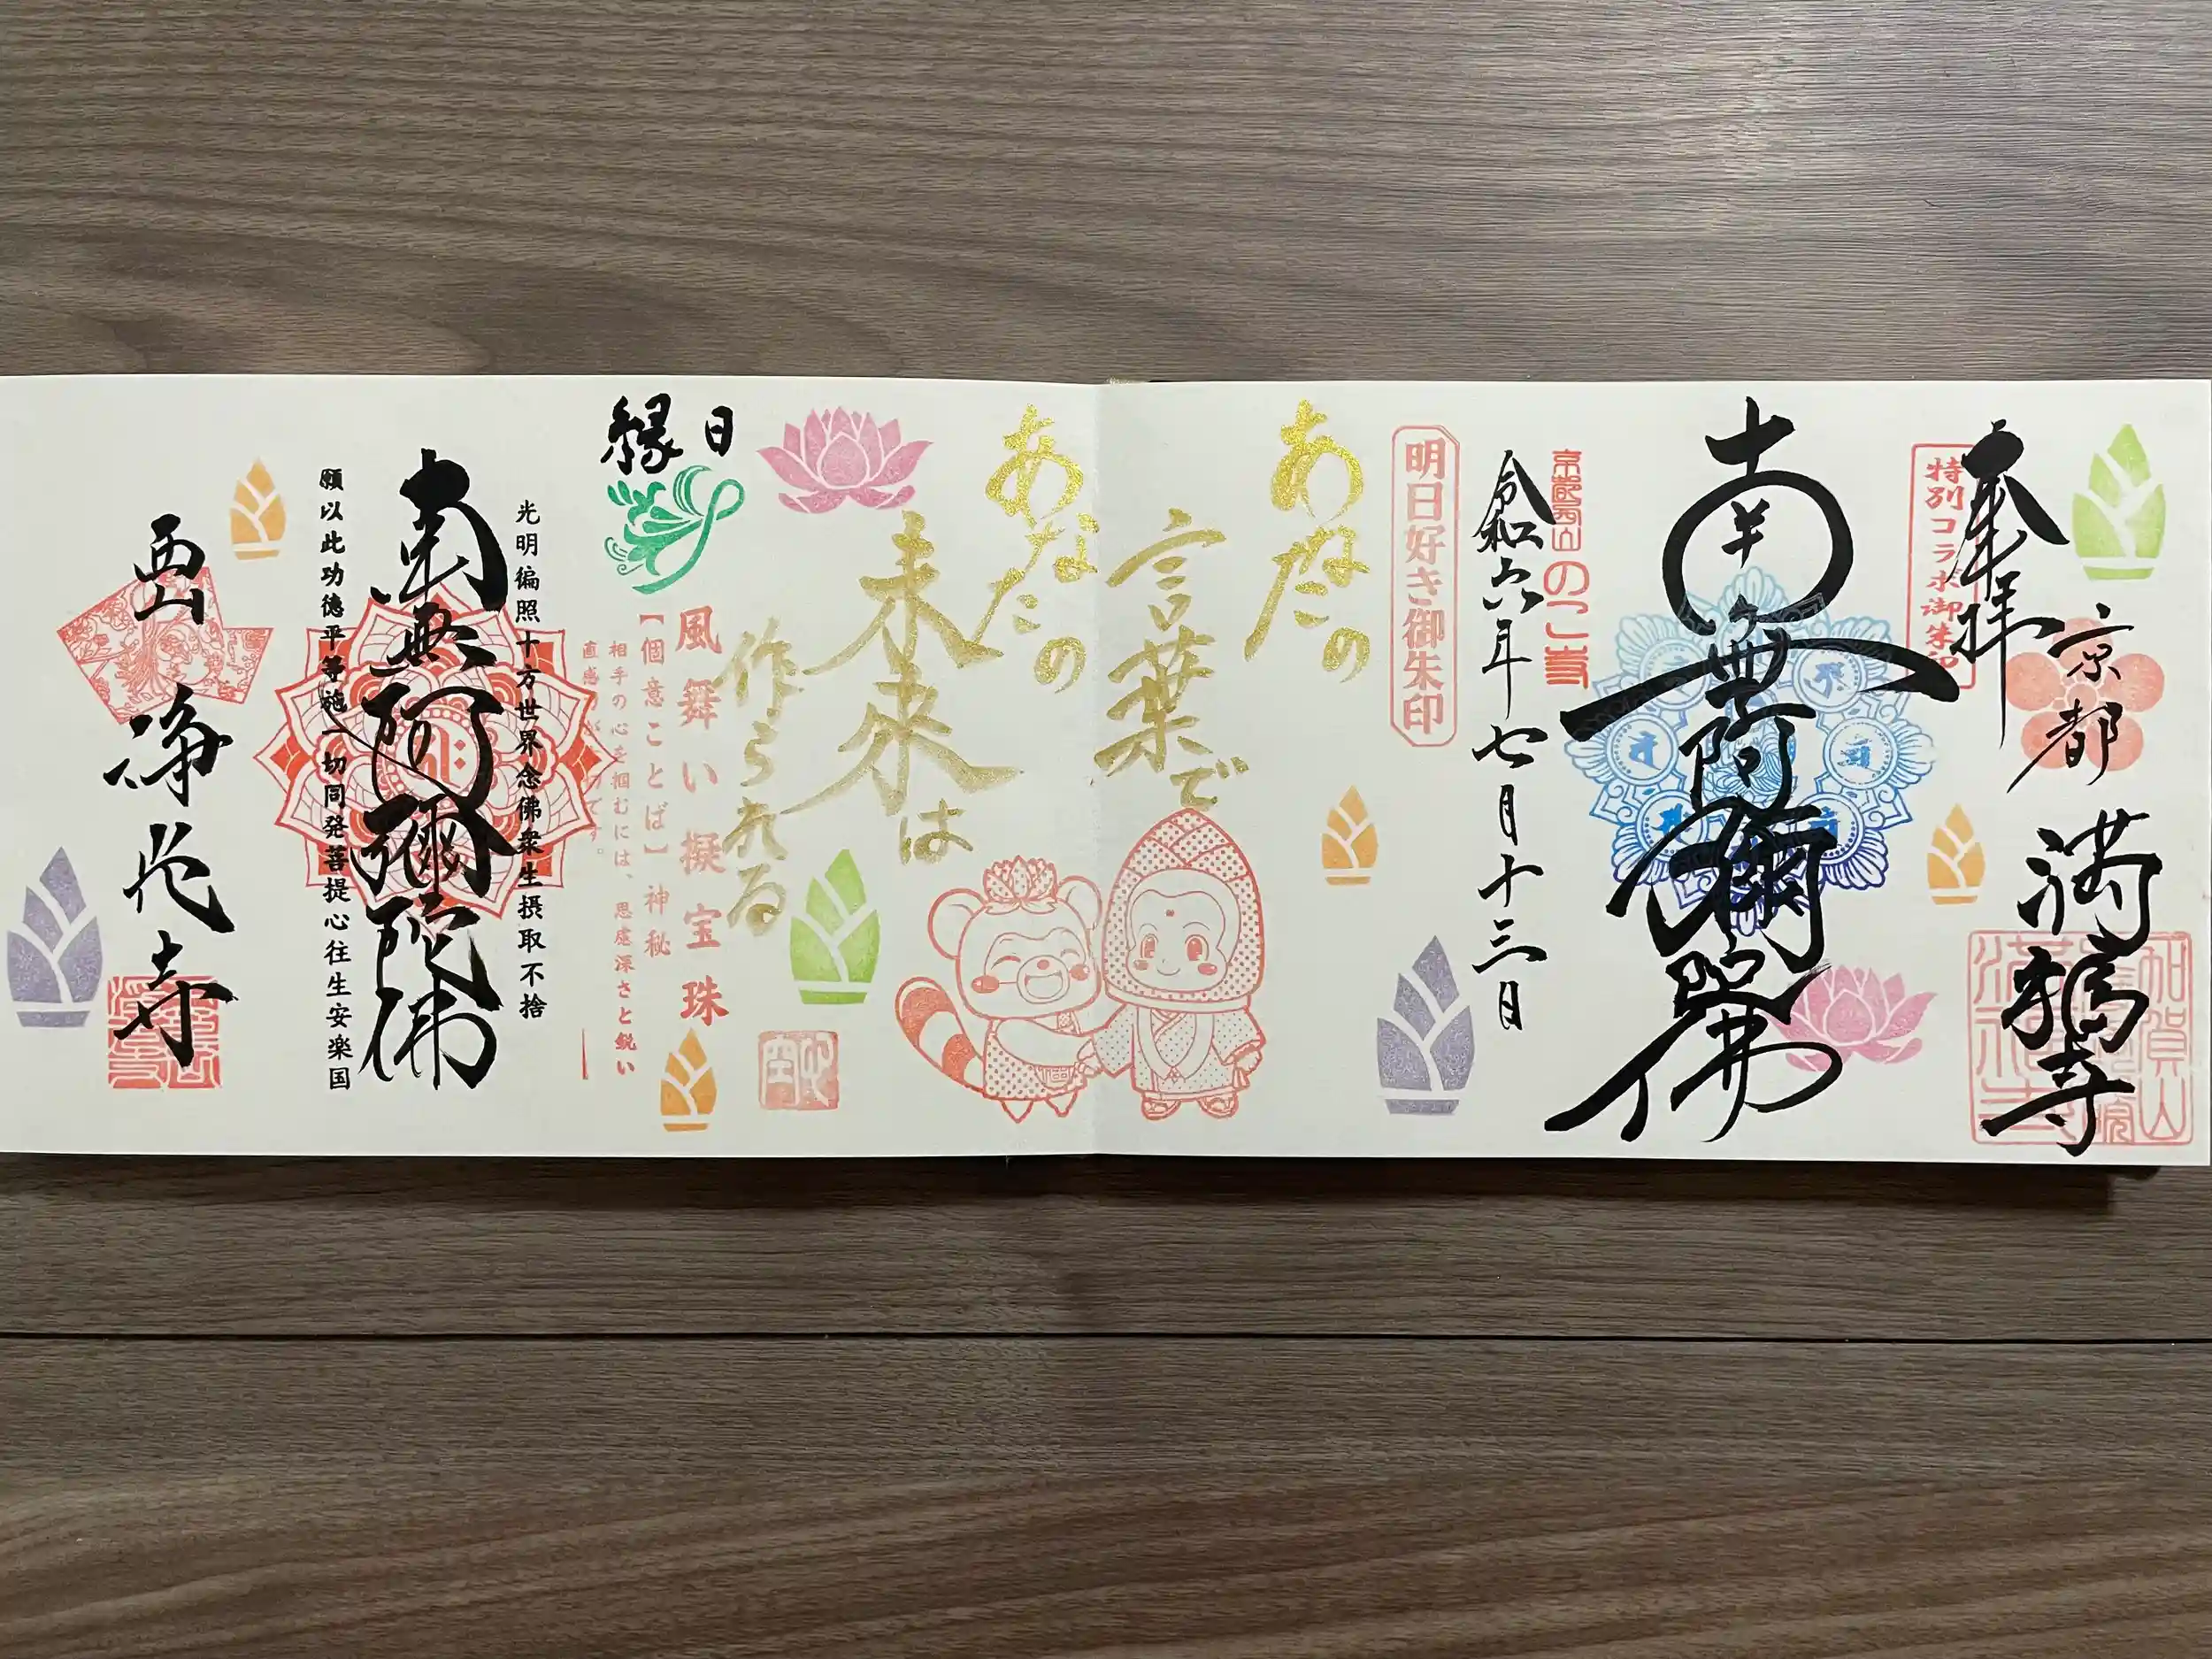 奉拝
京都
満福寺
特別コラボ御朱印
南無阿彌陀佛
令和六年七月十三日
明日好き御朱印
あなたの
言葉で
あなたの
未来は
作られる
縁日
風舞い擬宝珠
【個意ことば】神秘
相手の心を掴むには、思慮深さと鋭い
光明徧照十方世界念佛衆生摂取不捨
南無阿彌陀佛
願以此功徳平等施一切同発菩提心往生安楽国
西山
浄光寺